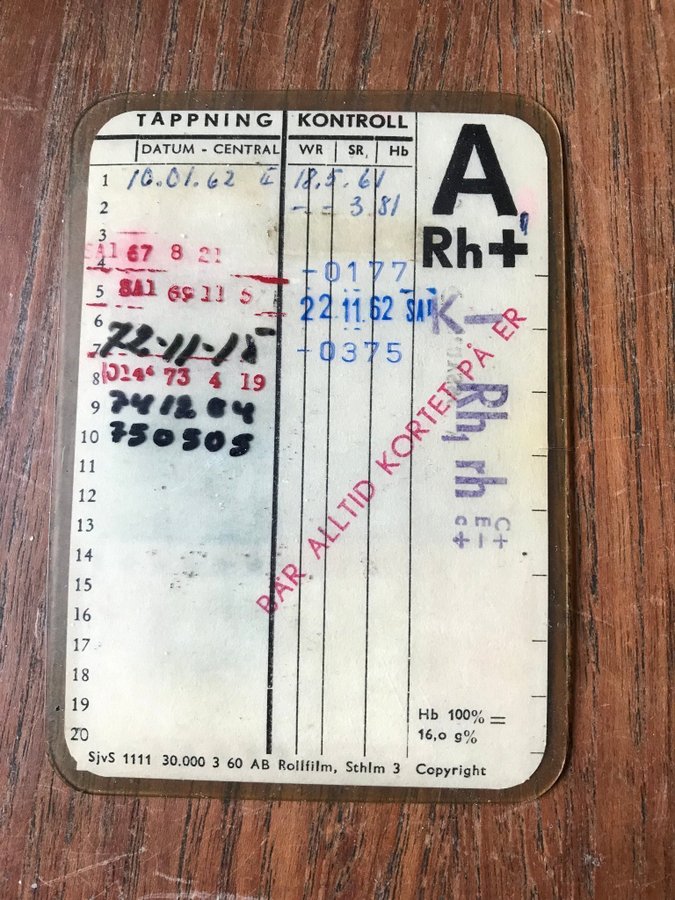 TAPPNING KONTROLL
DATUM - CENTRAL WR SR, Hb
A,
Rh+
1 10.01.62 I 18.5.61
2 - = 3 81
3
SA1 67 8 21
4 -0177
5 SA1 69 11 5
22.11.62 SA1
6
72-11-15
7 -0375
8 73 4 19
9 741204
10 750505
11
12
13
14
15
16
17
18
19
20
K-
Rh, rh
C+
E-
c+
BÄR ALLTID KORTET PÅ ER
Hb 100% =
16,0 g%
SjvS 1111 30.000 3 60 AB Rollfilm, Sthlm 3 Copyright